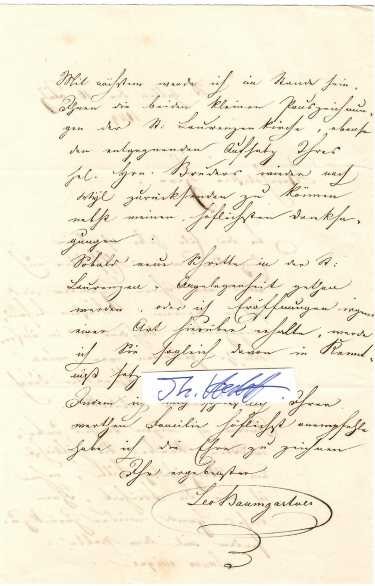 Mit nächstem werde ich im Stande sein,
Ihnen die beiden kleinen Pauszeichnun-
gen der St: Laurenzenkirche, ebenso
den entgegnenden Aufsatz Ihres
sel. Hrn. Bruders wieder nach
Wyl zurücksenden zu können
nebst meinen höflichsten Danksa-
gungen.
Sobald neue Schritte in der St:
Laurenzen-Angelegenheit gethan
werden, oder ich Eröffnungen irgend
einer Art hierüber erhalte, werde
ich Sie sogleich davon in Kennt-
niß setz
Indem ich Ihren
werthen Familie höflichst anempfehle
habe ich die Ehre zu zeichnen
Ihr ergebenster
Leo Baumgartner